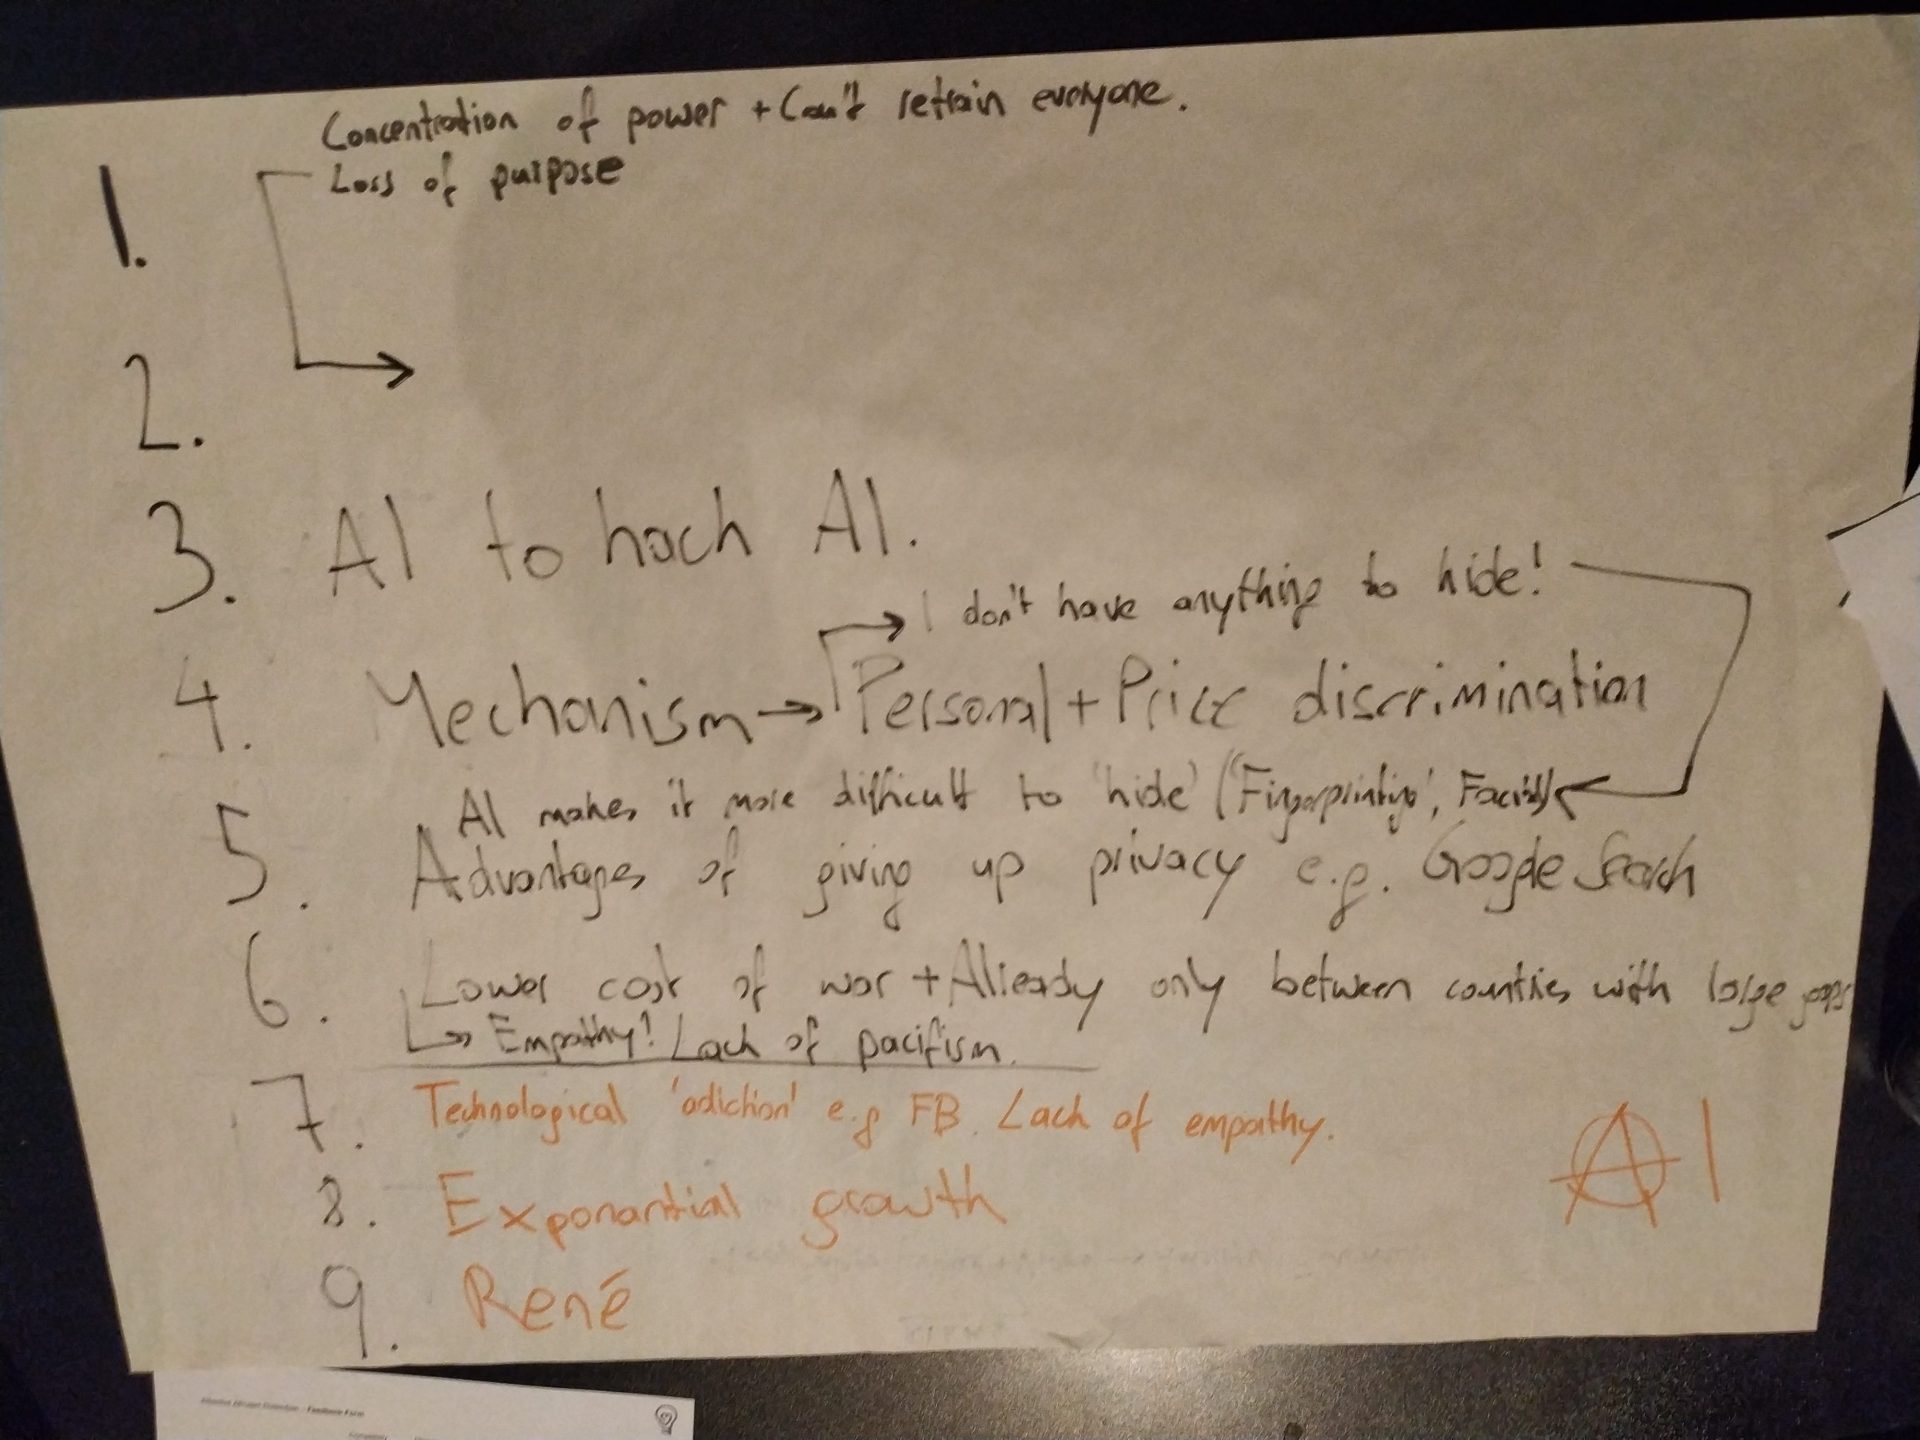 Concentration of power + Can't retrain everyone.
1. Loss of purpose
2.
3. AI to hack AI.
I don't have anything to hide!
4. Mechanism → Personal + Price discrimination
AI makes it more difficult to 'hide' ('Fingerprinting',
5. Advantages of giving up privacy e.g. Google Search
6. Lower cost of war + Already only between countries with large gaps
Empathy? Lack of pacifism.
7. Technological 'adiction' e.g FB. Lack of empathy.
AI
8. Exponantial growth
9. René